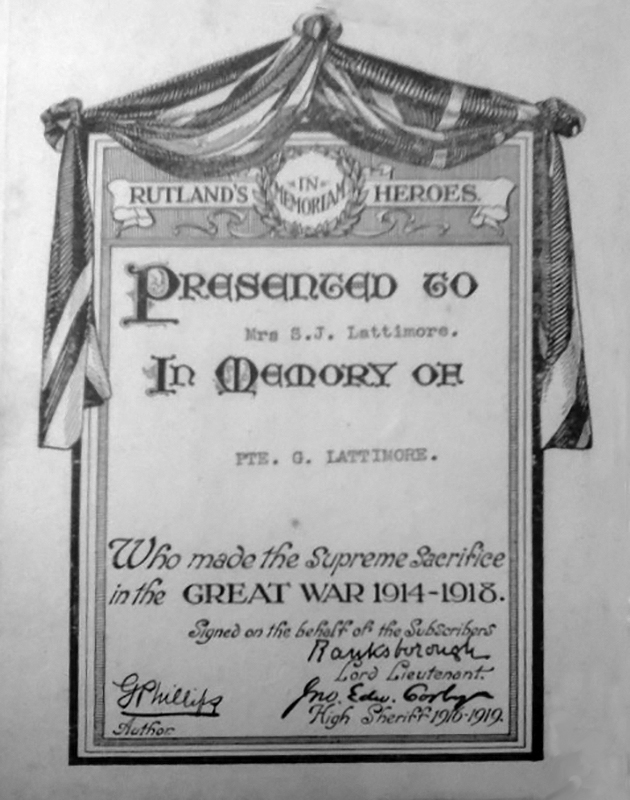 IN
MEMORIAM
RUTLAND'S HEROES.
PRESENTED TO
Mrs S.J. Lattimore.
IN MEMORY OF
PTE. G. LATTIMORE.
Who made the Supreme Sacrifice
in the GREAT WAR 1914-1918.
Signed on the behalf of the Subscribers
Ranksborough
Lord Lieutenant.
GPhillips
Jno. Edw. Corby
Author.
High Sheriff 1916-1919.